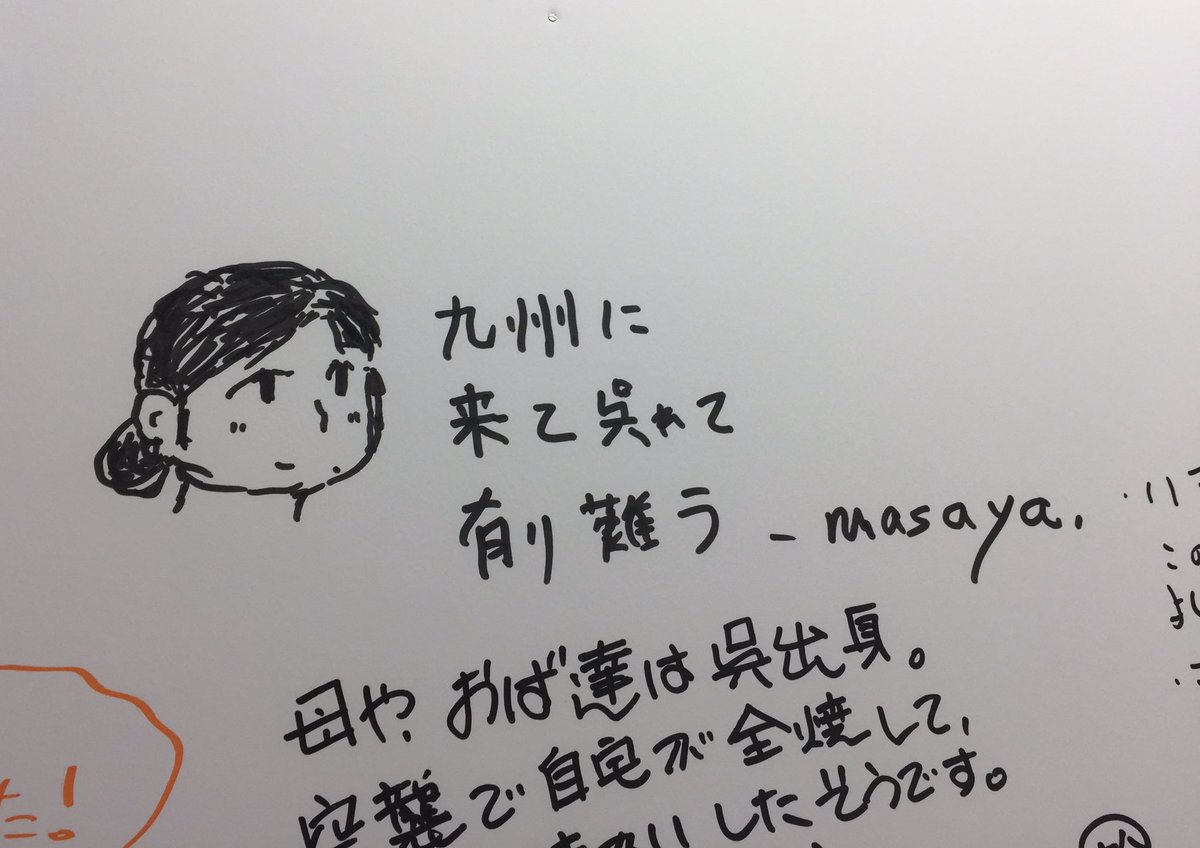 九州に
来て呉れて
有り難う - masaya.
母や、おば達は呉出身。
空襲で自宅が全焼して、
したそうです。
この
た!